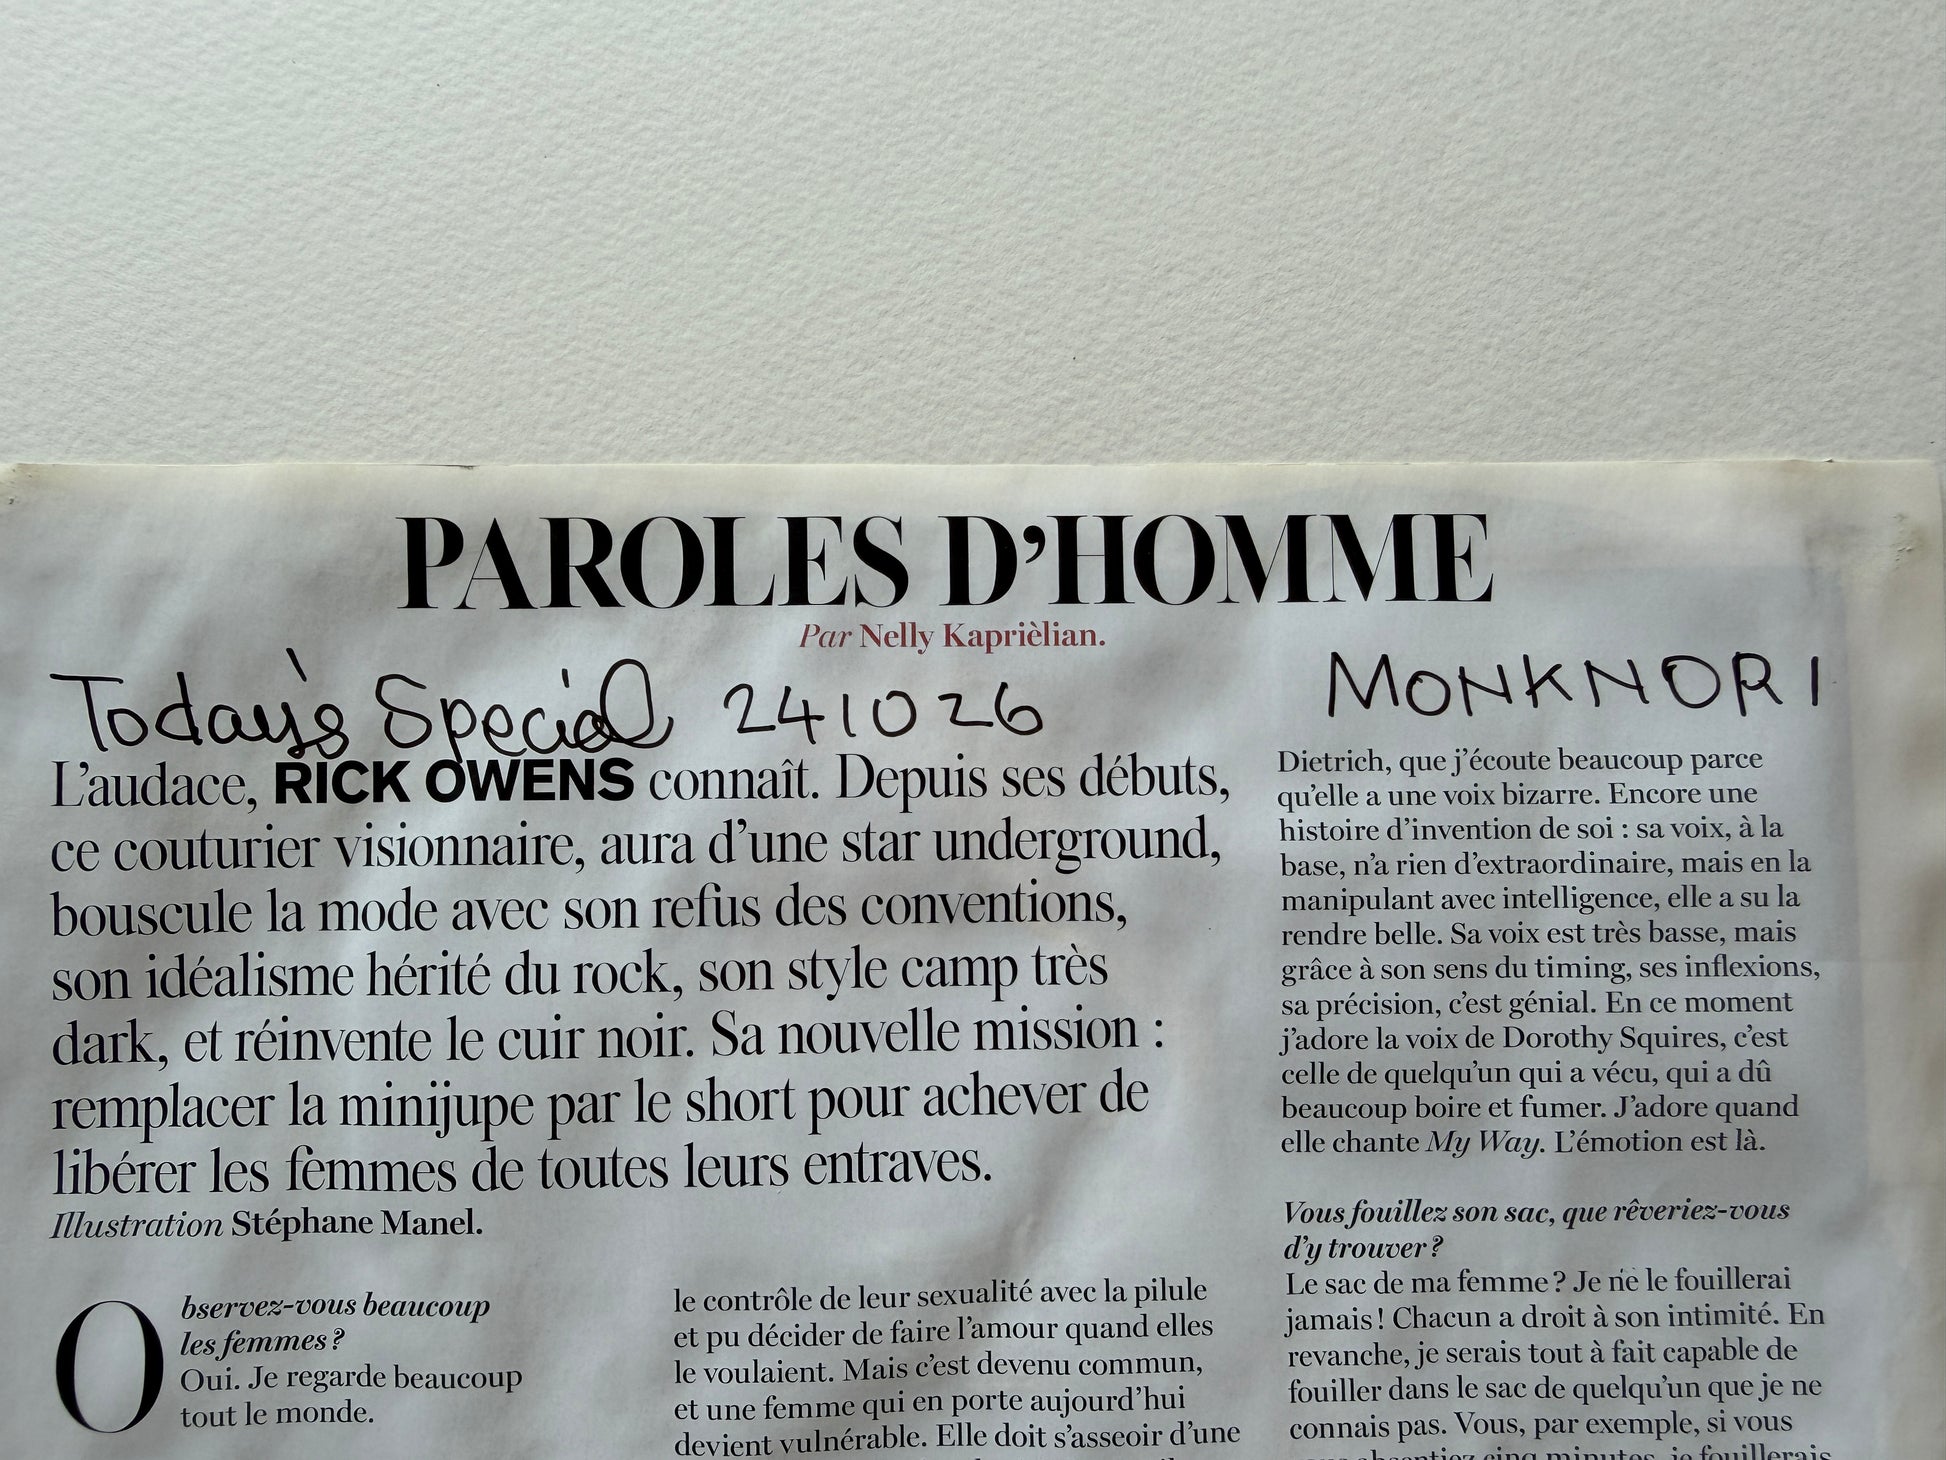 PAROLES D'HOMME
Par Nelly Kaprièlian.
Today's Special 241026
MONKNORI
L'audace, RICK OWENS connaît. Depuis ses débuts,
ce couturier visionnaire, aura d'une star underground,
bouscule la mode avec son refus des conventions,
son idéalisme hérité du rock, son style camp très
dark, et réinvente le cuir noir. Sa nouvelle mission :
remplacer la minijupe par le short pour achever de
libérer les femmes de toutes leurs entraves.
Illustration Stéphane Manel.
Observez-vous beaucoup
les femmes ?
Oui. Je regarde beaucoup
tout le monde.
le contrôle de leur sexualité avec la pilule
et pu décider de faire l'amour quand elles
le voulaient. Mais c'est devenu commun,
et une femme qui en porte aujourd'hui
devient vulnérable. Elle doit s'asseoir d'une
Dietrich, que j'écoute beaucoup parce
qu'elle a une voix bizarre. Encore une
histoire d'invention de soi : sa voix, à la
base, n'a rien d'extraordinaire, mais en la
manipulant avec intelligence, elle a su la
rendre belle. Sa voix est très basse, mais
grâce à son sens du timing, ses inflexions,
sa précision, c'est génial. En ce moment
j'adore la voix de Dorothy Squires, c'est
celle de quelqu'un qui a vécu, qui a dû
beaucoup boire et fumer. J'adore quand
elle chante My Way. L'émotion est là.
Vous fouillez son sac, que rêveriez-vous
d'y trouver ?
Le sac de ma femme ? Je ne le fouillerai
jamais ! Chacun a droit à son intimité. En
revanche, je serais tout à fait capable de
fouiller dans le sac de quelqu'un que je ne
connais pas. Vous, par exemple, si vous
cinq minutes, je fouillerais